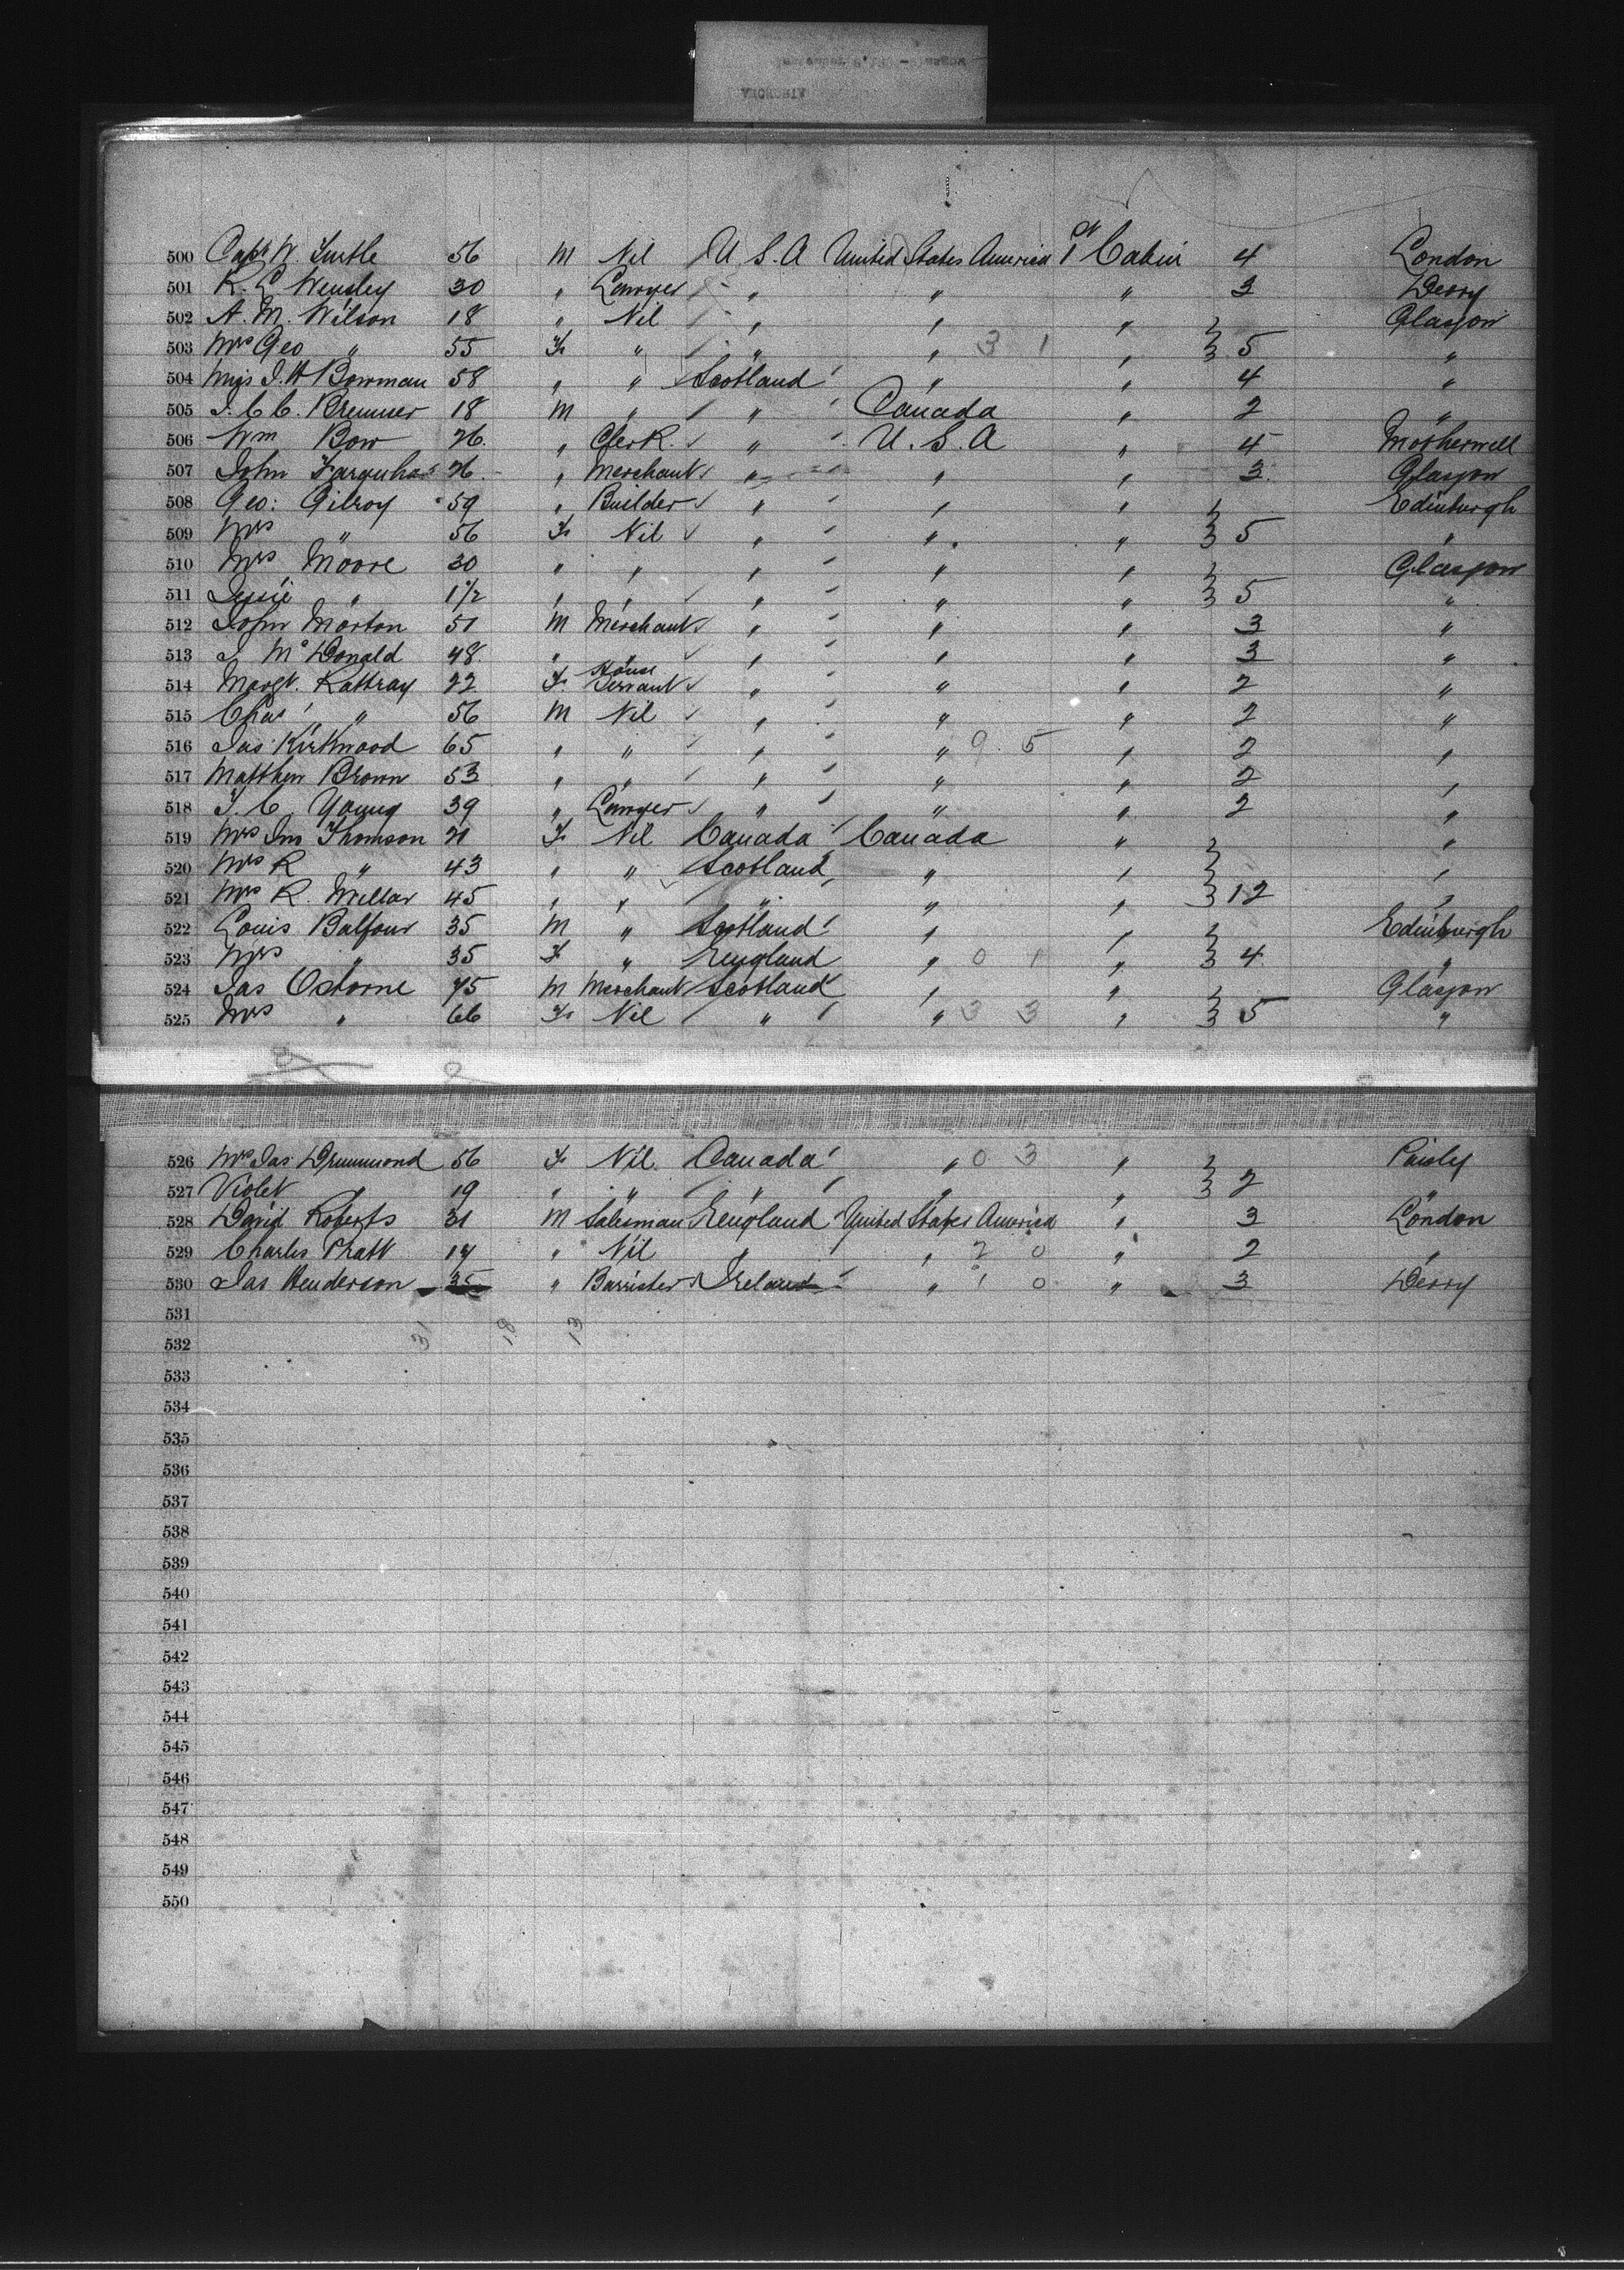 500 Capt W. Turtle 56 M Nil U.S.A United States America 1st Cabin 4 London
501 R. L Wensley 30 " Lawyer " " " 3 Derry
502 A. M. Wilson 18 " Nil " " " Glasgow
503 Mrs Geo " 55 F " " " 3 1 " 5 "
504 Miss J. H Bowman 58 " " Scotland " " 4 "
505 J. C C. Bremner 18 M " " Canada " 2 "
506 Wm Bow 26 " Clerk " U.S.A " 4 Motherwell
507 John Farquhar 26 " Merchant " " " 3 Glasgow
508 Geo: Gilroy 59 " Builder " " " Edinburgh
509 Mrs " 56 F Nil " " " 5 "
510 Mrs Moore 30 " " " " " Glasgow
511 Jessie " 1 1/2 " " " " " 5 "
512 John Morton 51 M Merchant " " " 3 "
513 J McDonald 48 " " " " " 3 "
514 Margt. Rattray 22 F House Servant " " " 2 "
515 Chas " 56 M Nil " " " 2 "
516 Jas Kirkwood 65 " " " " 9 5 " 2 "
517 Matthew Brown 53 " " " " " 2 "
518 T. C Young 39 " Lawyer " " " 2 "
519 Mrs Jno Thomson 71 F Nil Canada Canada " "
520 Mrs R " 43 " " Scotland " " "
521 Mrs R. Millar 45 " " " " " 12 "
522 Louis Balfour 35 M " Scotland " " Edinburgh
523 Mrs " 35 F " England " 0 1 " 4 "
524 Jas Osborne 75 M Merchant Scotland " " Glasgow
525 Mrs " 66 F Nil " " 3 3 " 5 "
526 Mrs Jas Drummond 56 F Nil Canada " 0 3 " Paisly
527 Violet " 19 " " " " " 2 "
528 David Roberts 31 M Salesman England United States America " 3 London
529 Charles Pratt 14 " Nil " " 2 0 " 2 "
530 Jas Henderson 35 " Barrister Ireland " 1 0 " 3 Derry
531 31 18 13
532
533
534
535
536
537
538
539
540
541
542
543
544
545
546
547
548
549
550